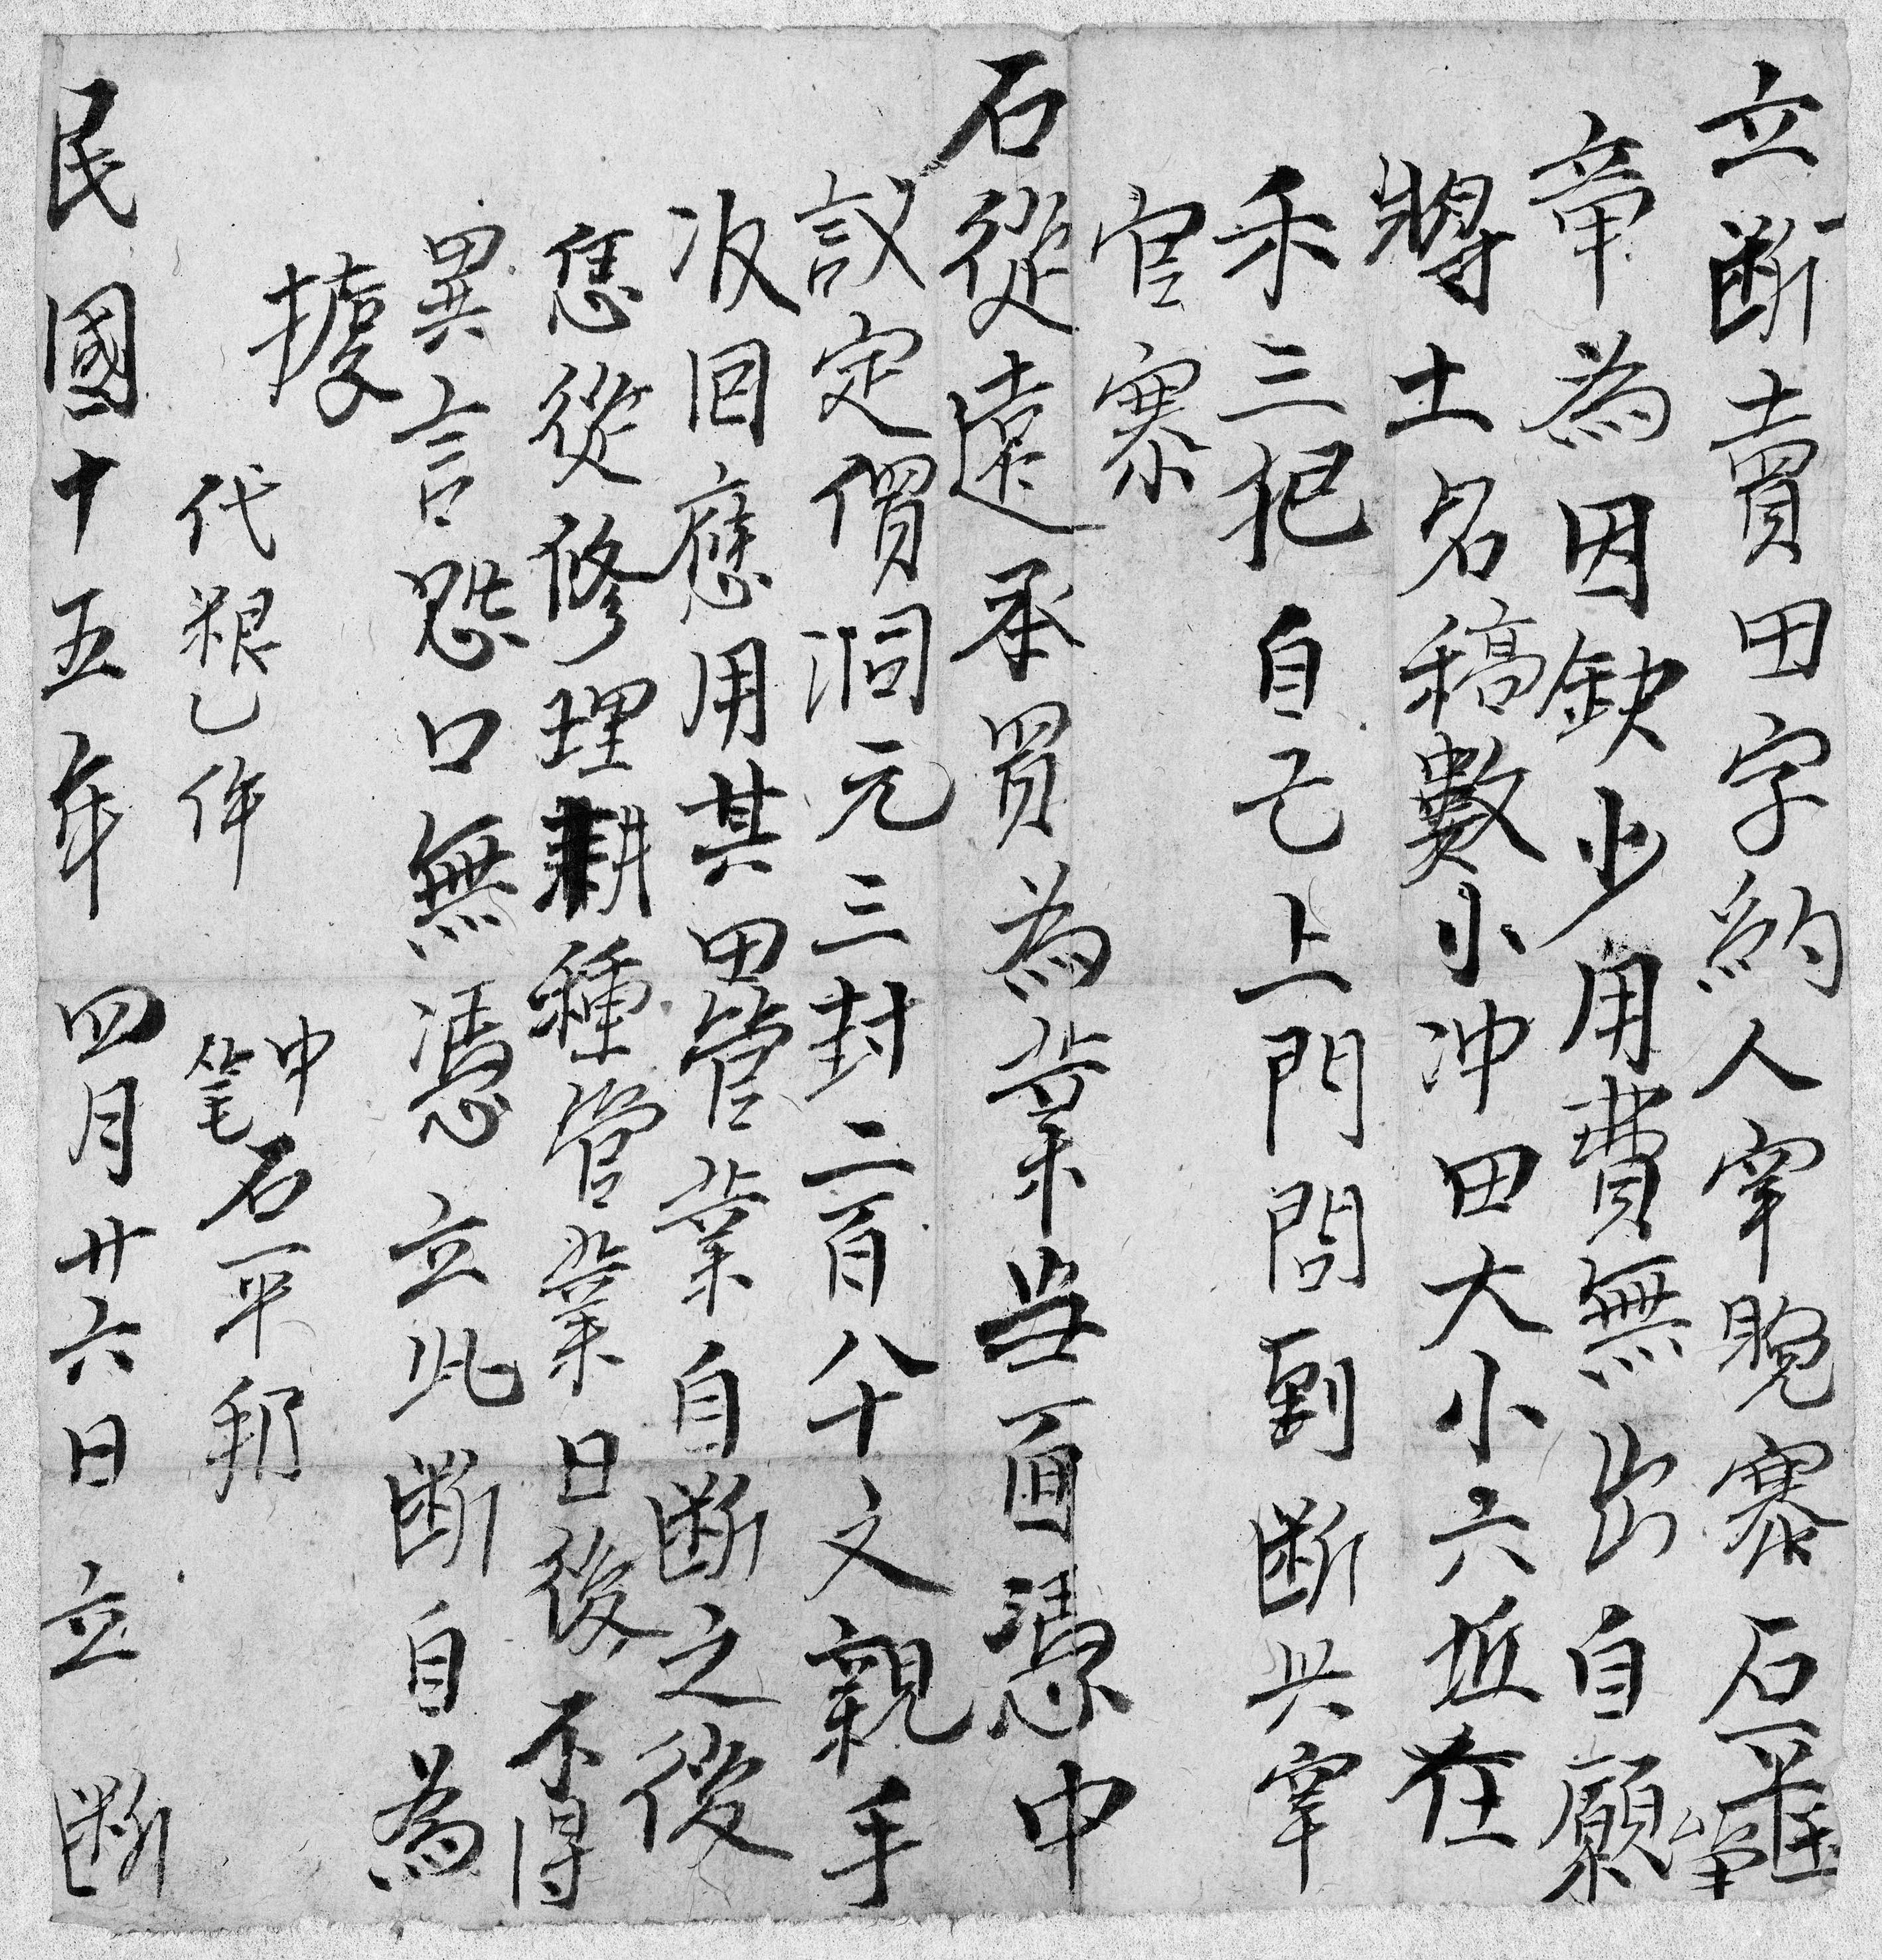 立斷賣田字約人宰晚寨石平
章為因缺少用費無出自願
將土名稿數小冲田大小六坵在
禾三把自己上門問到斷與宰
官寨
石從遠承買為業当面憑中
議定價洞元三封二百八十文親手
收回應用其田管業自斷之後
恁從修理耕種管業日後不得
異言恐口無憑立此斷自為
據
代粮乙件
中
笔
石平邦
民國十五年四月廿六日立斷